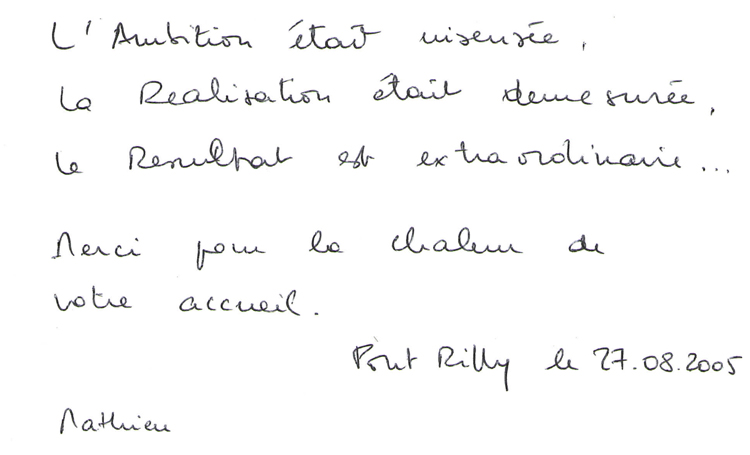 L'Ambition était insensée,
la Realisation était demesurée,
le Resultat est extraordinaire...
Merci pour la chaleur de
votre accueil.
Pont Rilly le 27.08.2005
Mathieu